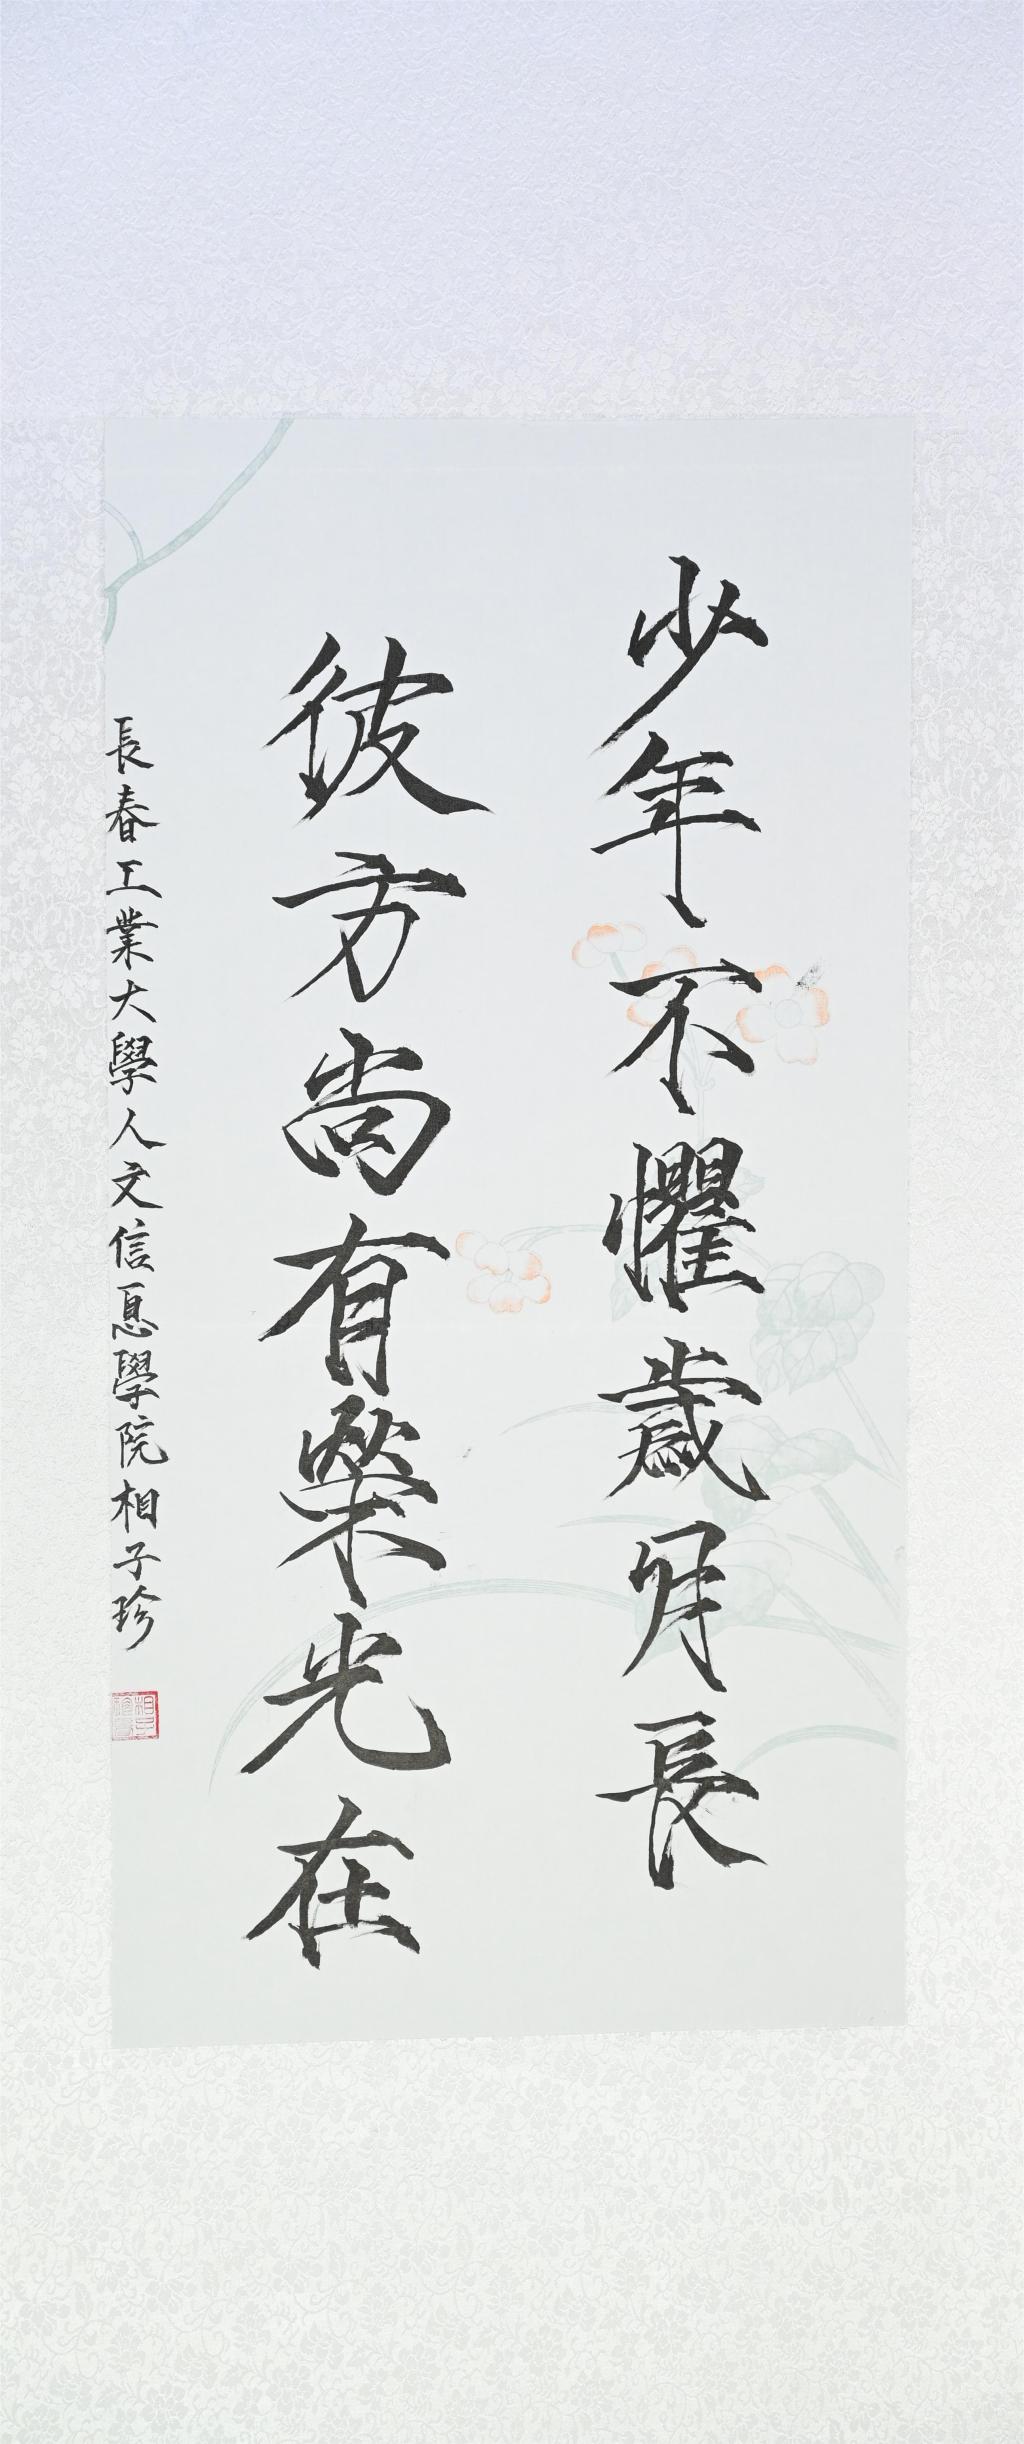 少年不懼歲月長
彼方尚有榮光在
長春工業大學人文信息學院相子珍